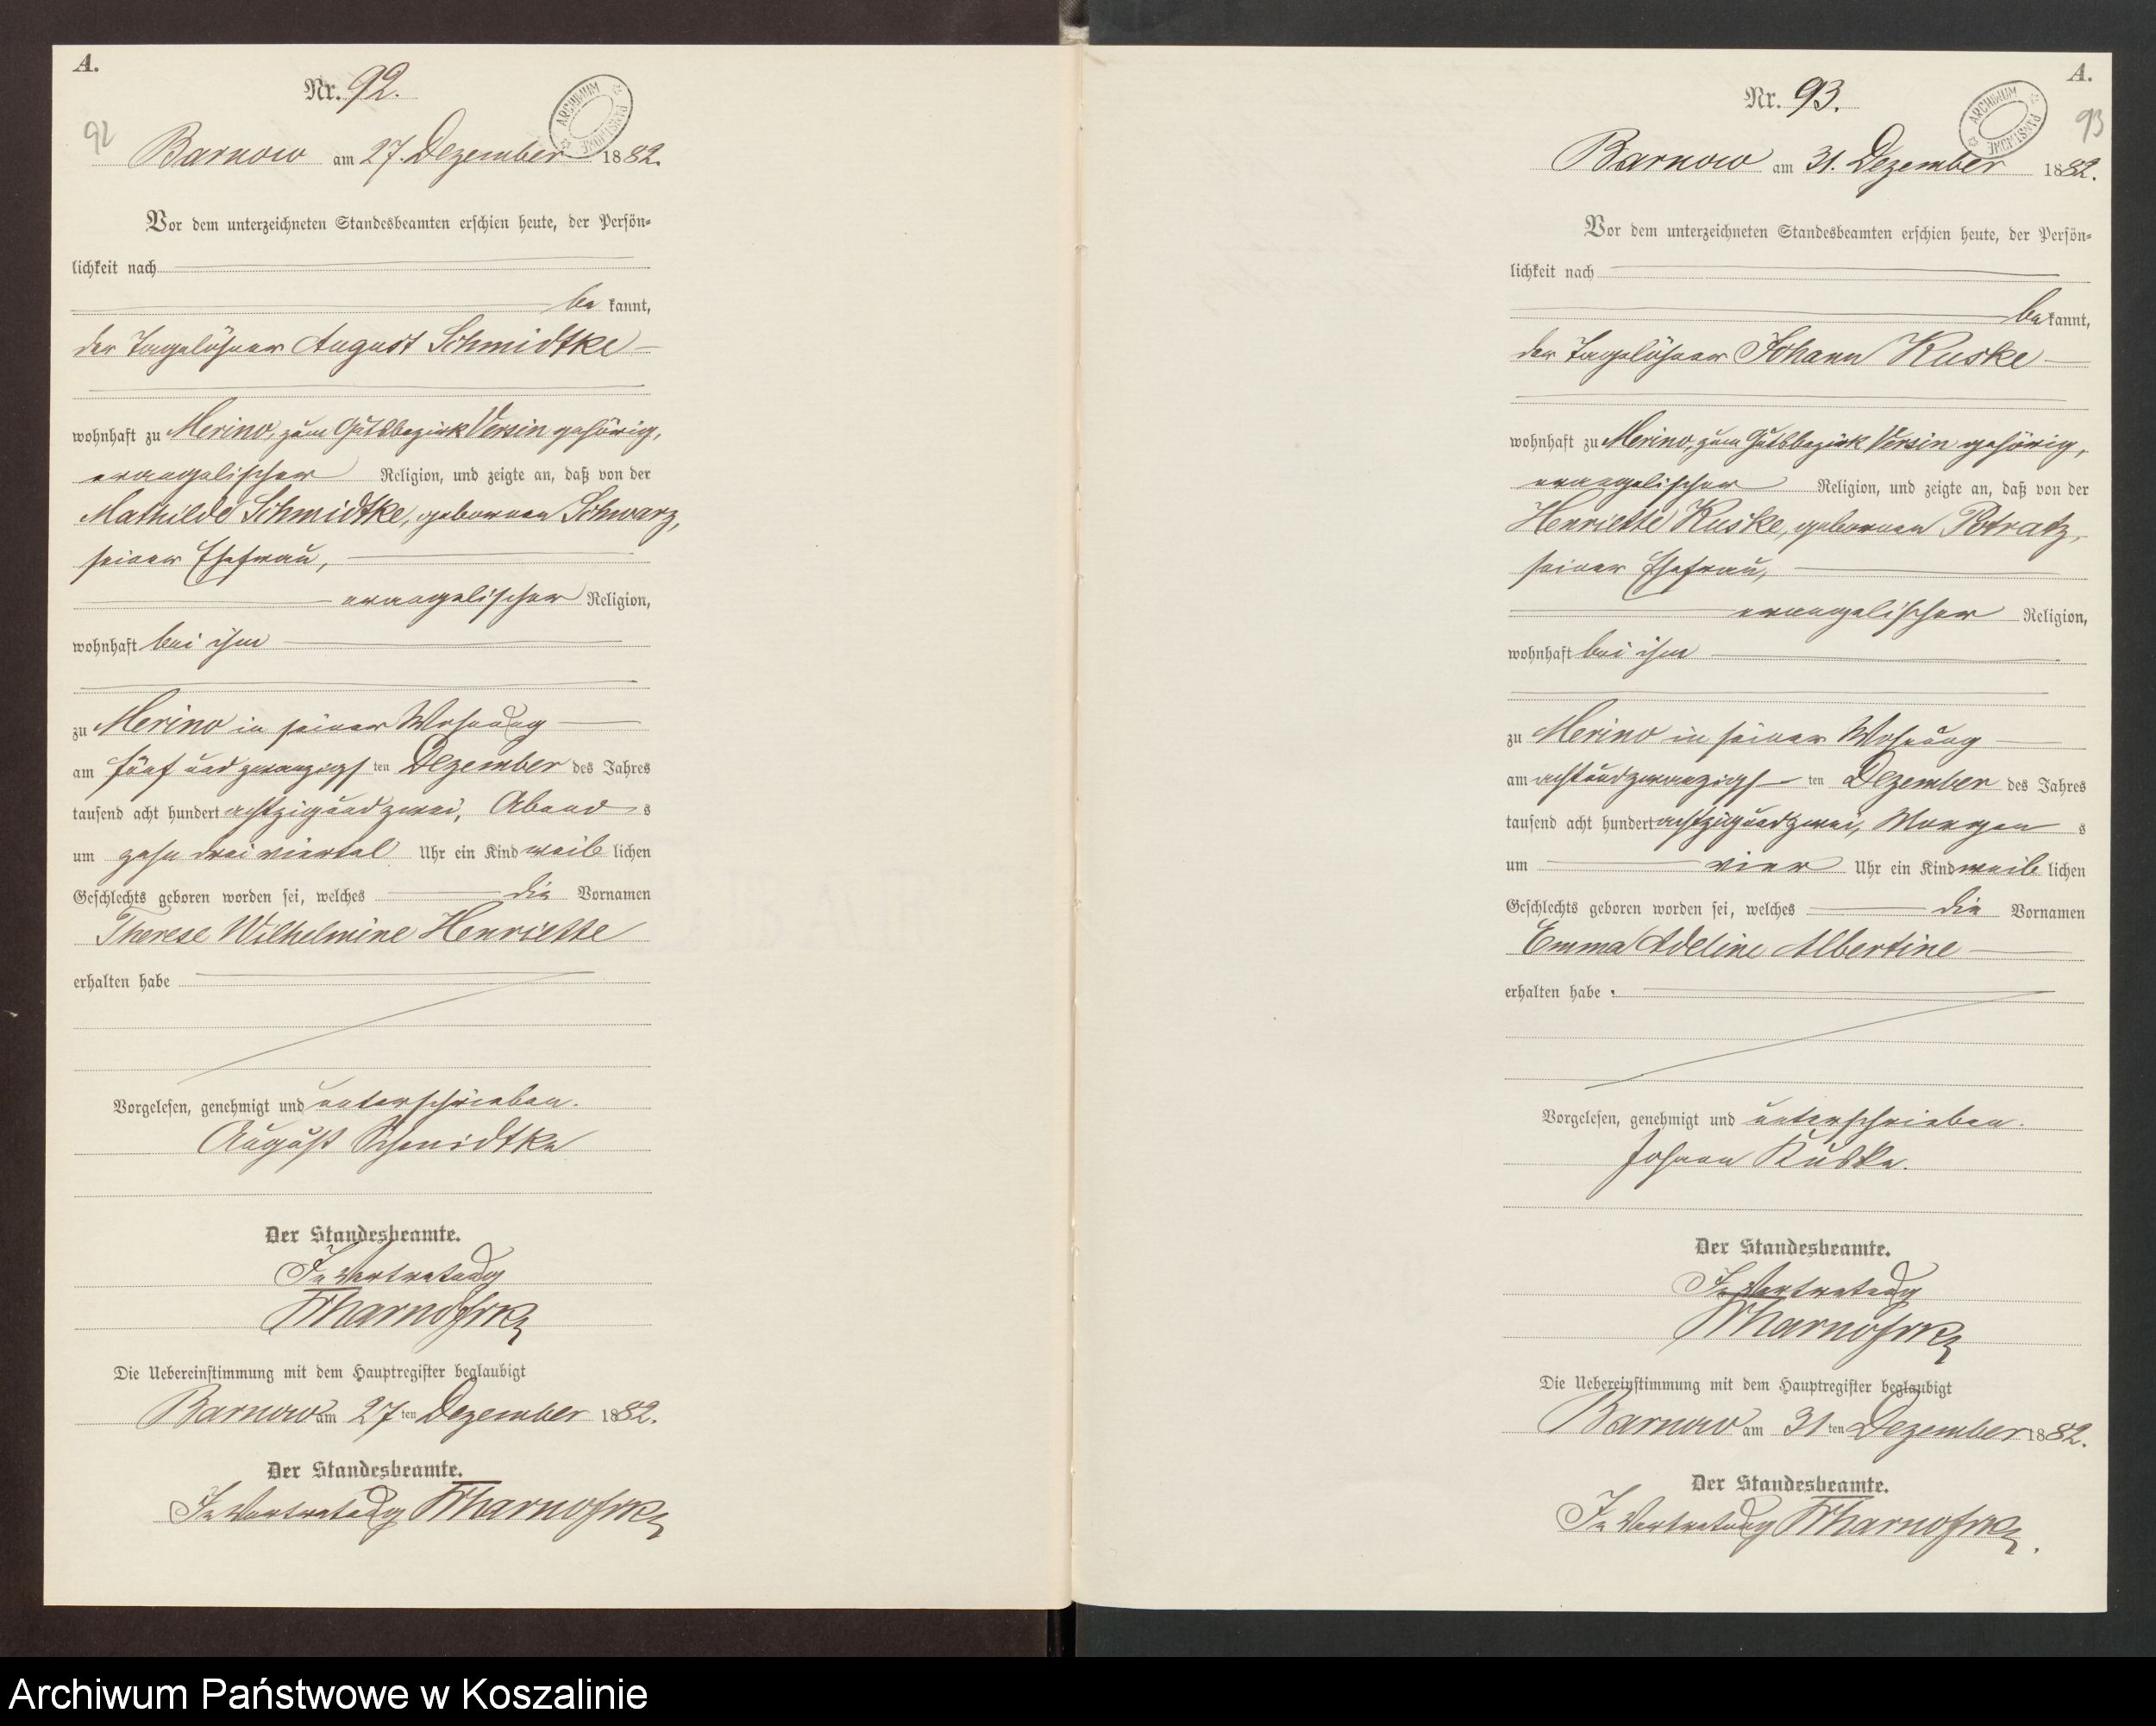 A.
Nr. 92.
92
ARCHIWUM PAŃSTWOWE
Barnow am 27. Dezember 1882.
Vor dem unterzeichneten Standesbeamten erschien heute, der Persön-
lichkeit nach
be kannt,
der Tagelöhner August Schmidtke
wohnhaft zu Merino, zum Gutsbezirk Versin gehörig,
evangelischer Religion, und zeigte an, daß von der
Mathilde Schmidtke, geborenen Schwarz,
seiner Ehefrau,
evangelischer Religion,
wohnhaft bei ihm
zu Merino in seiner Wohnung
am fünf und zwanzigs ten Dezember des Jahres
tausend acht hundert achtzig und zwei, Abend s
um zehn drei viertel Uhr ein Kind weib lichen
Geschlechts geboren worden sei, welches die Vornamen
Therese Wilhelmine Henriette
erhalten habe
Vorgelesen, genehmigt und unterschrieben.
August Schmidtke
Der Standesbeamte.
In Vertretung
Die Uebereinstimmung mit dem Hauptregister beglaubigt
Barnow am 27 ten Dezember 1882.
Der Standesbeamte.
In Vertretung
A.
Nr. 93.
93
ARCHIWUM PAŃSTWOWE
Barnow am 31. Dezember 1882.
Vor dem unterzeichneten Standesbeamten erschien heute, der Persön-
lichkeit nach
be kannt,
der Tagelöhner Johann Kuske
wohnhaft zu Merino, zum Gutsbezirk Versin gehörig,
evangelischer Religion, und zeigte an, daß von der
Henriette Kuske, geborenen Potratz,
seiner Ehefrau,
evangelischer Religion,
wohnhaft bei ihm
zu Merino in seiner Wohnung
am acht und zwanzigs ten Dezember des Jahres
tausend acht hundert achtzig und zwei, Morgen s
um vier Uhr ein Kind weib lichen
Geschlechts geboren worden sei, welches die Vornamen
Emma Adeline Albertine
erhalten habe.
Vorgelesen, genehmigt und unterschrieben.
Johann Kuske.
Der Standesbeamte.
In Vertretung
Die Uebereinstimmung mit dem Hauptregister beglaubigt
Barnow am 31 ten Dezember 1882.
Der Standesbeamte.
In Vertretung
Archiwum Państwowe w Koszalinie